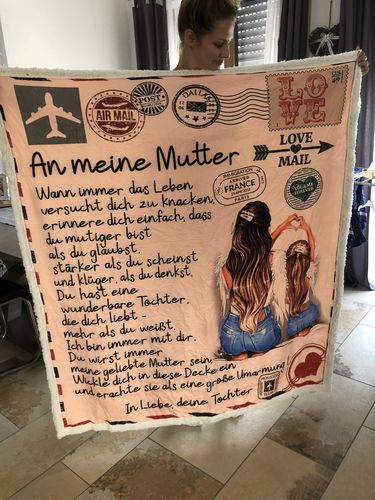 AIR MAIL
POST
DALLAS
LOVE
US
LOVE
MAIL
An meine Mutter
IMMIGRATION
ARRIVED
FRANCE
PARIS
Wann immer das Leben
versucht dich zu knacken,
erinnere dich einfach, dass
du mutiger bist
als du glaubst,
stärker als du scheinst
und klüger, als du denkst.
Du hast eine
wunderbare Tochter,
die dich liebt -
mehr als du weißt.
Ich bin immer mit dir.
Du wirst immer
meine geliebte Mutter sein.
Wickle dich in diese Decke ein
und erachte sie als eine große Umarmung
In Liebe, deine Tochter